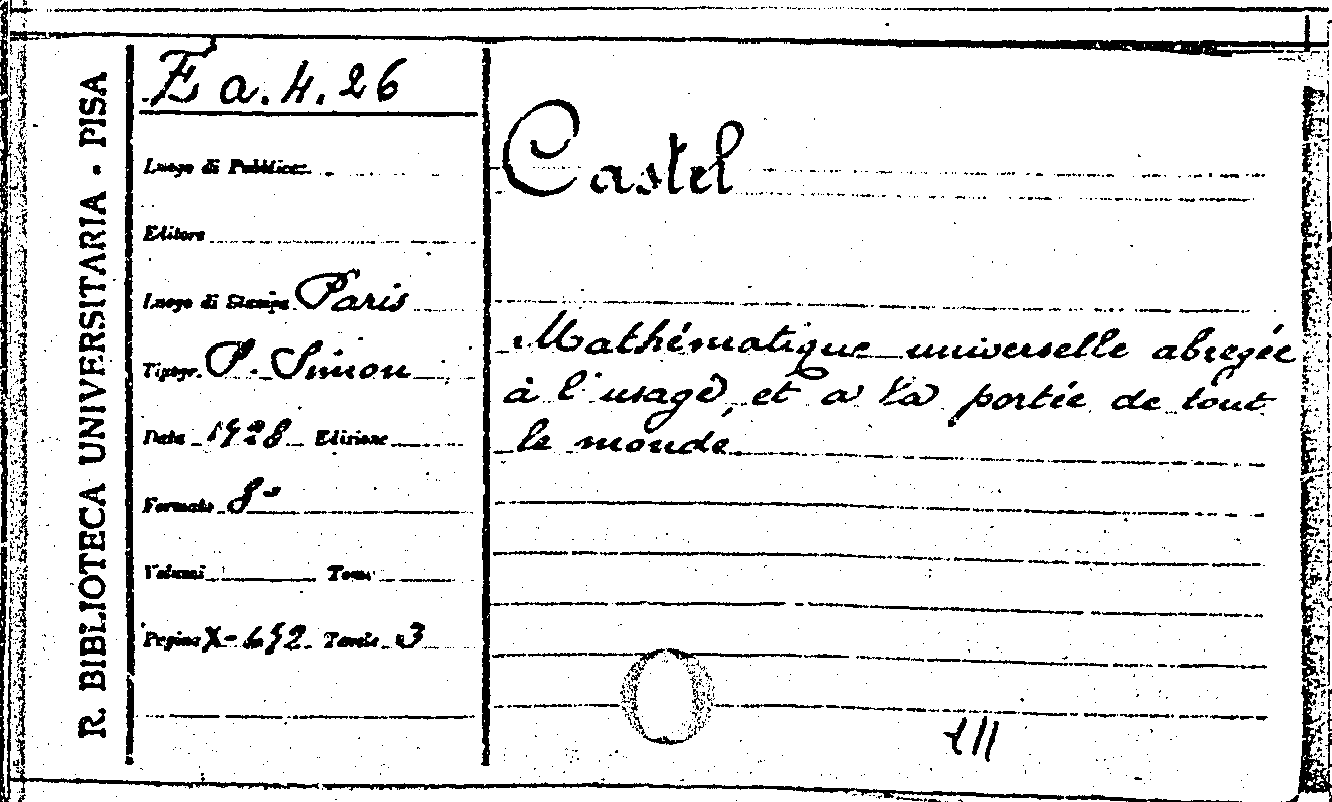 R. BIBLIOTECA UNIVERSITARIA - PISA
E a. 4. 26
Luogo di Pubblicaz.
Editore
Luogo di Stampa Paris
Tipogr. P. Simon
Data 1728 Edizione
Formato 8°
Volumi Tomi
Pagine X-652 Tavole 3
Castel
Mathématique universelle abregée
à l'usage, et a la portée de tout
le monde